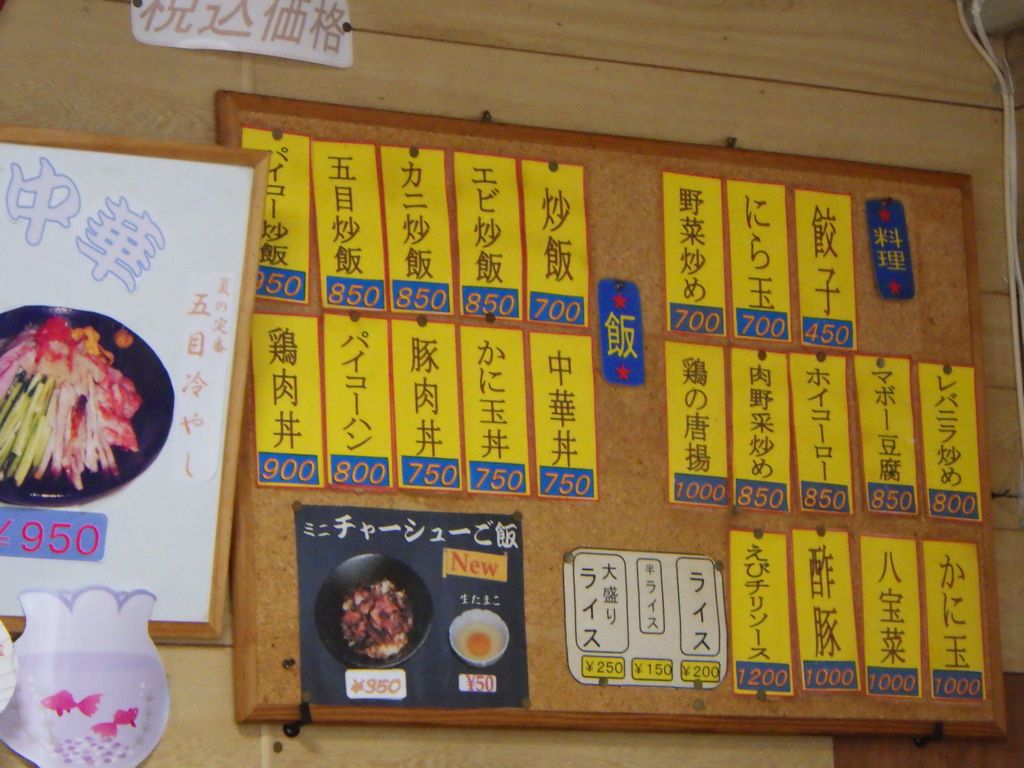 税込価格
料理
餃子
450
にら玉
700
野菜炒め
700
レバニラ炒め
800
マボー豆腐
850
ホイコーロー
850
肉野菜炒め
850
鶏の唐揚
1000
かに玉
1000
八宝菜
1000
酢豚
1000
えびチリソース
1200
飯
炒飯
700
エビ炒飯
850
カニ炒飯
850
五目炒飯
850
パイコー炒飯
950
中華丼
750
かに玉丼
750
豚肉丼
750
パイコーハン
800
鶏肉丼
900
ライス
¥200
半ライス
¥150
大盛りライス
¥250
ミニチャーシューご飯
New
生たまご
¥350
¥50
中華
夏の定番
五目冷やし
¥950